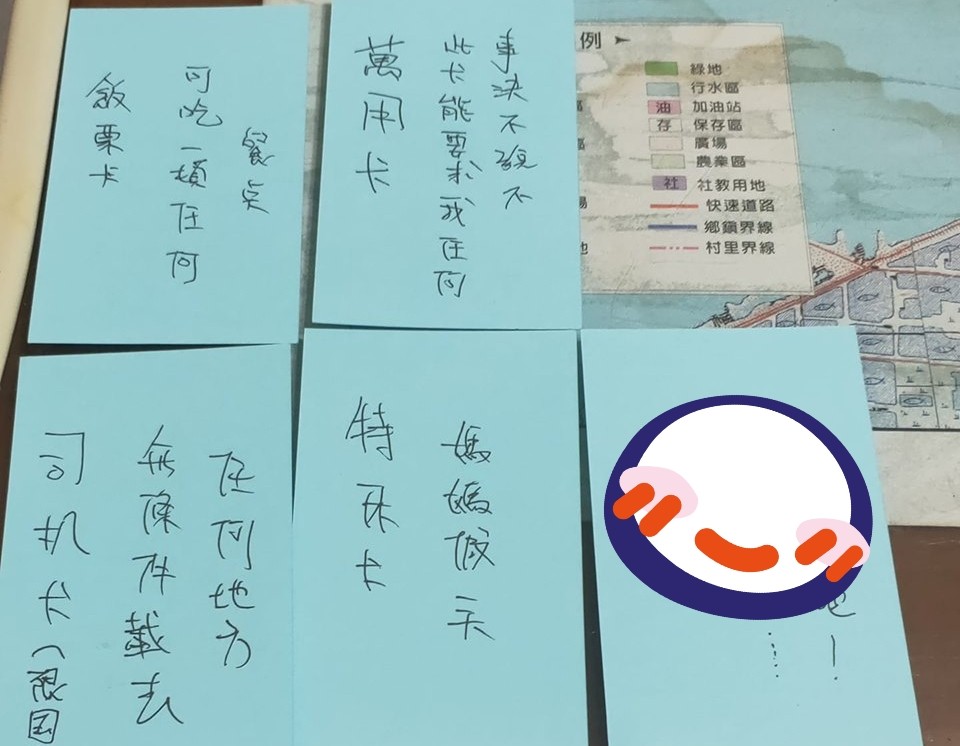 飯票卡
可吃一頓任何
餐点
萬用卡
此卡能要求我任何
事決不說不
例
綠地
行水區
油 加油站
存 保存區
廣場
農業區
社 社教用地
快速道路
鄉鎮界線
村里界線
司机卡(限国
無條件載去
任何地方
特休卡
媽媽假一天
!
……